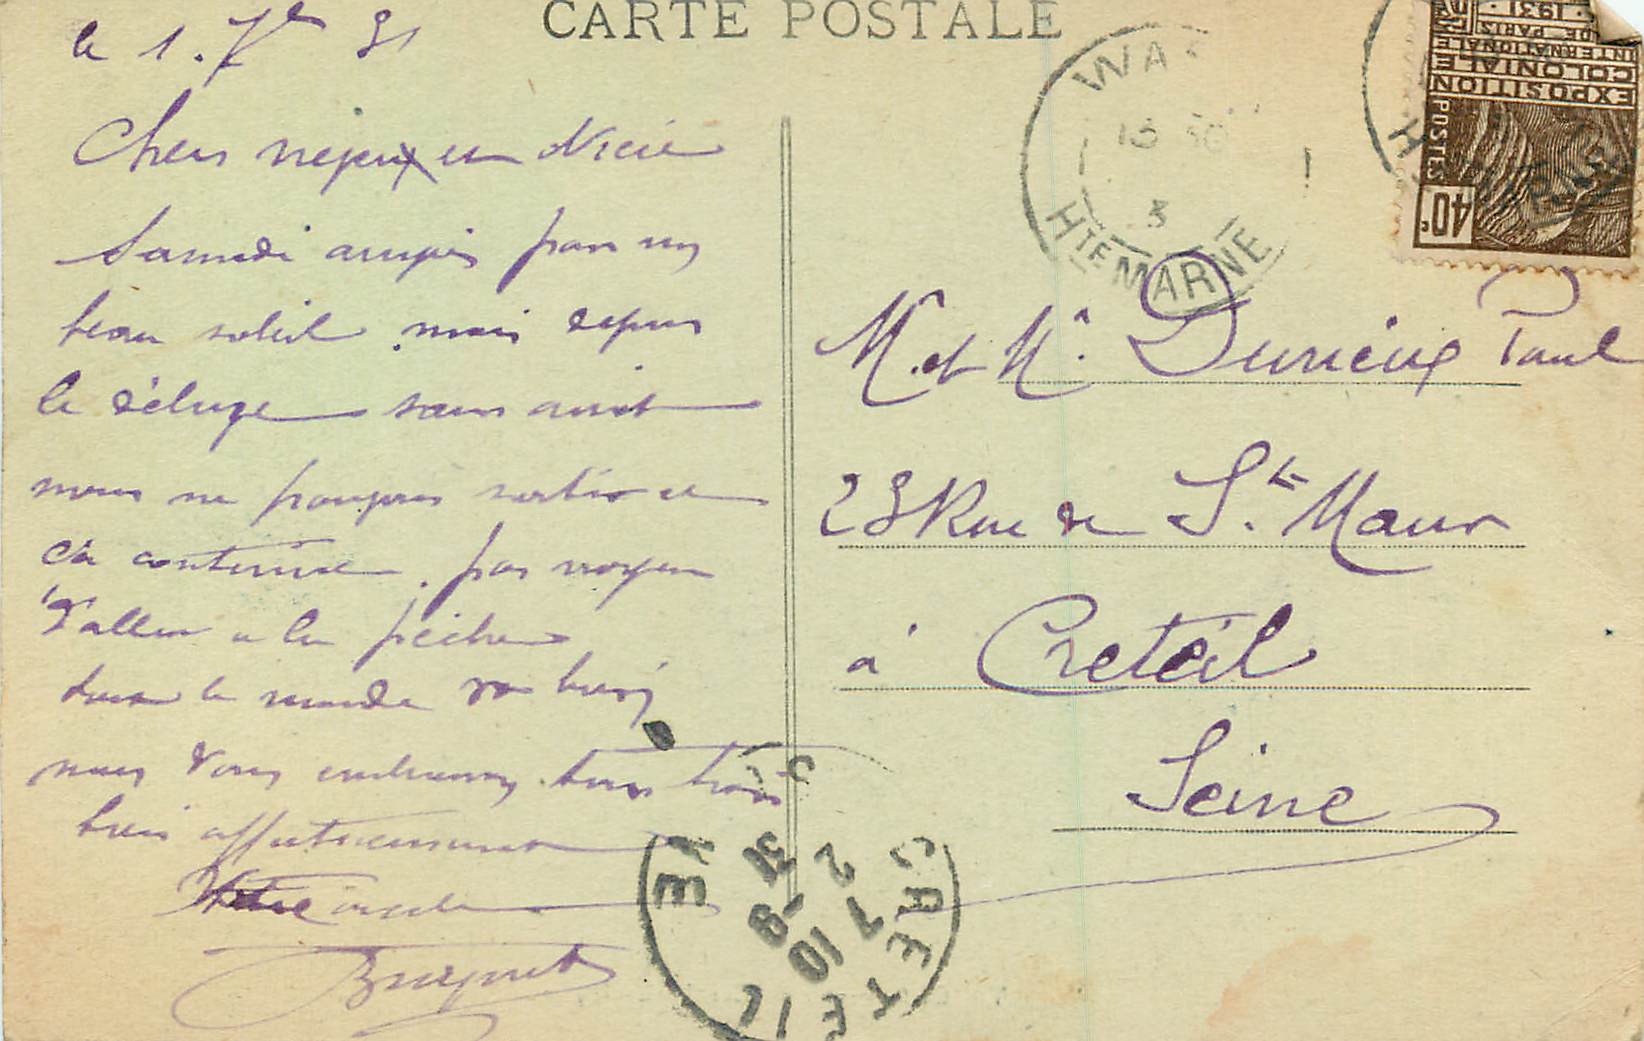 CARTE POSTALE
le 1. 7bre 31
Chers nejeux et Niece
Samedi arrivés par un
beau soleil mais depuis
le déluge sans arret
nous ne pouvons sortir et
ca continue. pas moyen
d'aller a la pêche
tout le monde va bien
nous vous embrassons tous trois
bien affectueusement
Votre oncle
WAS
15 30
3
HTE MARNE
EXPOSITION
COLONIALE
INTERNATIONALE
DE PARIS
1931
POSTES
40c
M. et Me. Durieux Paul
23 Rue de St. Maur
à Creteil
Seine
CRETEIL
SEINE
7 10
2 -9
31